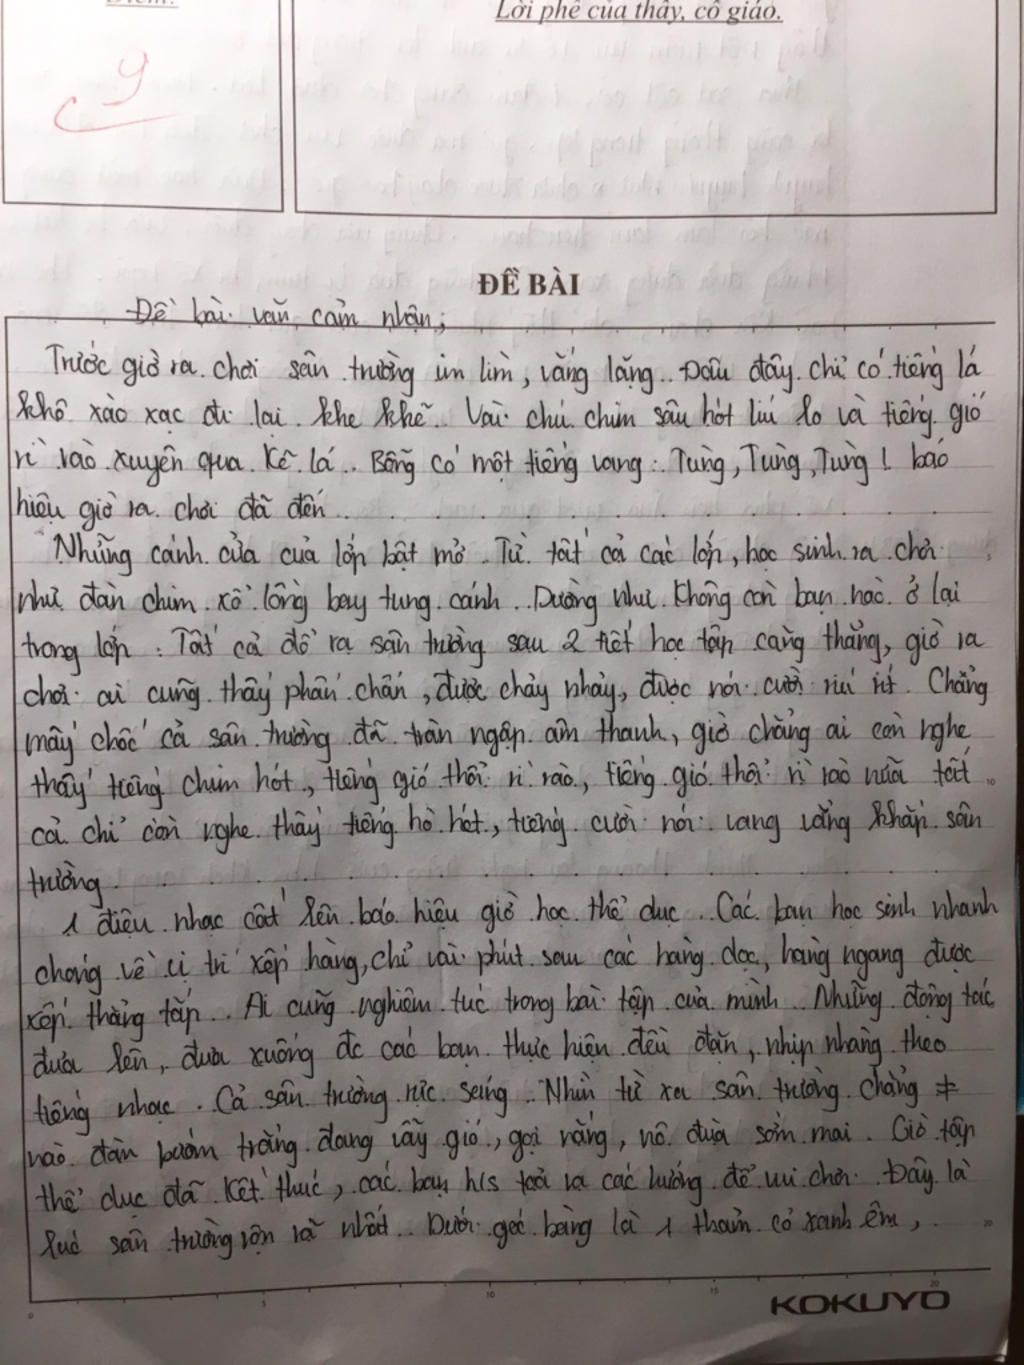 Điểm:
Lời phê của thầy, cô giáo.
9
ĐỀ BÀI
Đề bài văn cảm nhận;
Trước giờ ra chơi sân trường im lìm, vắng lặng.. Đâu đây chỉ có tiếng lá
khô xào xạc đi lại khe khẽ. Vài chú chim sâu hót líu lo và tiếng gió
rì rào xuyên qua kẽ lá.. Bỗng có một tiếng vang: Tùng, Tùng, Tùng! báo
hiệu giờ ra chơi đã đến.
Những cánh cửa của lớp bật mở. Từ tất cả các lớp, học sinh ra chơi
như đàn chim xổ lồng bay tung cánh.. Dường như không còn bạn nào ở lại
trong lớp. Tất cả đổ ra sân trường sau 2 tiết học tập căng thẳng, giờ ra
chơi ai cũng thấy phấn chấn, được chạy nhảy, được nói cười ríu rít. Chẳng
mấy chốc cả sân trường đã tràn ngập âm thanh, giờ chẳng ai còn nghe
thấy tiếng chim hót, tiếng gió thổi rì rào, tiếng gió thổi rì rào nữa tất
cả chỉ còn nghe thấy tiếng hò hét, tiếng cười nói vang vẳng khắp sân
trường.
1 điệu nhạc cất lên báo hiệu giờ học thể dục.. Các bạn học sinh nhanh
chóng về vị trí xếp hàng, chỉ vài phút sau các hàng dọc, hàng ngang được
xếp thẳng tắp.. Ai cũng nghiêm túc trong bài tập của mình.. Những động tác
đưa lên, đưa xuống đc các bạn thực hiện đều đặn, nhịp nhàng theo
tiếng nhạc. Cả sân trường rực sáng.. Nhìn từ xa sân trường chẳng ≠
nào đàn bướm trắng đang vẫy gió, gọi nắng, nô đùa sớm mai. Giờ tập
thể dục đã kết thúc, các bạn h/s toả ra các hướng để vui chơi. Đây là
lúc sân trường rộn rã nhất.. Dưới gốc bàng là 1 thảm cỏ xanh êm,
0 5 10 15 20
20
KOKUYO